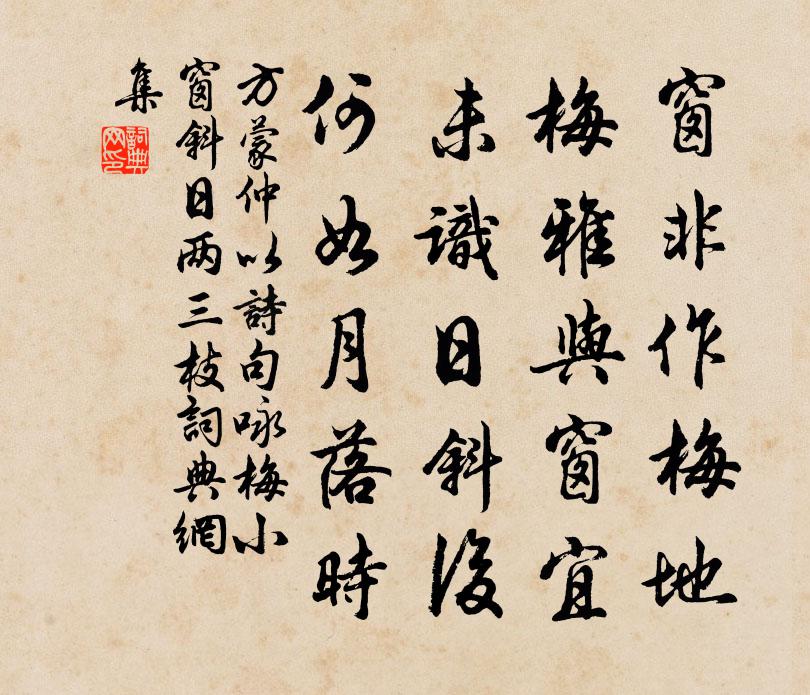 窗非作梅地
梅雅與窗宜
未識日斜後
何如月落時
方蒙仲以詩句咏梅小
窗斜日两三枝詞典網
集
詞典
网印